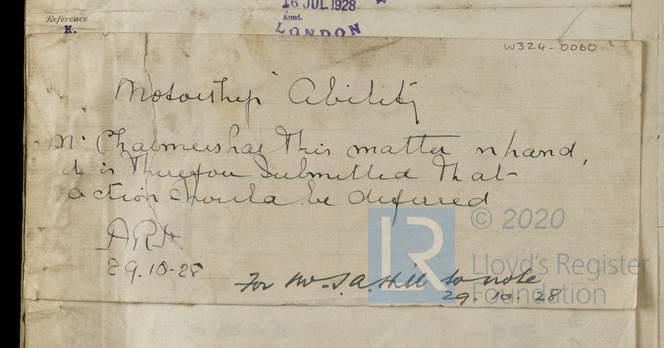 Reference
H.
16 JUL 1928
Ansd.
LONDON
W324-0060
Motorship Ability
Mr Chalmers has this matter in hand,
it is therefore submitted that
action should be deferred
29.10.28
For Mr. J.A. Hill to note
29.10.28
© 2020
LR
Lloyd's Register
Foundation